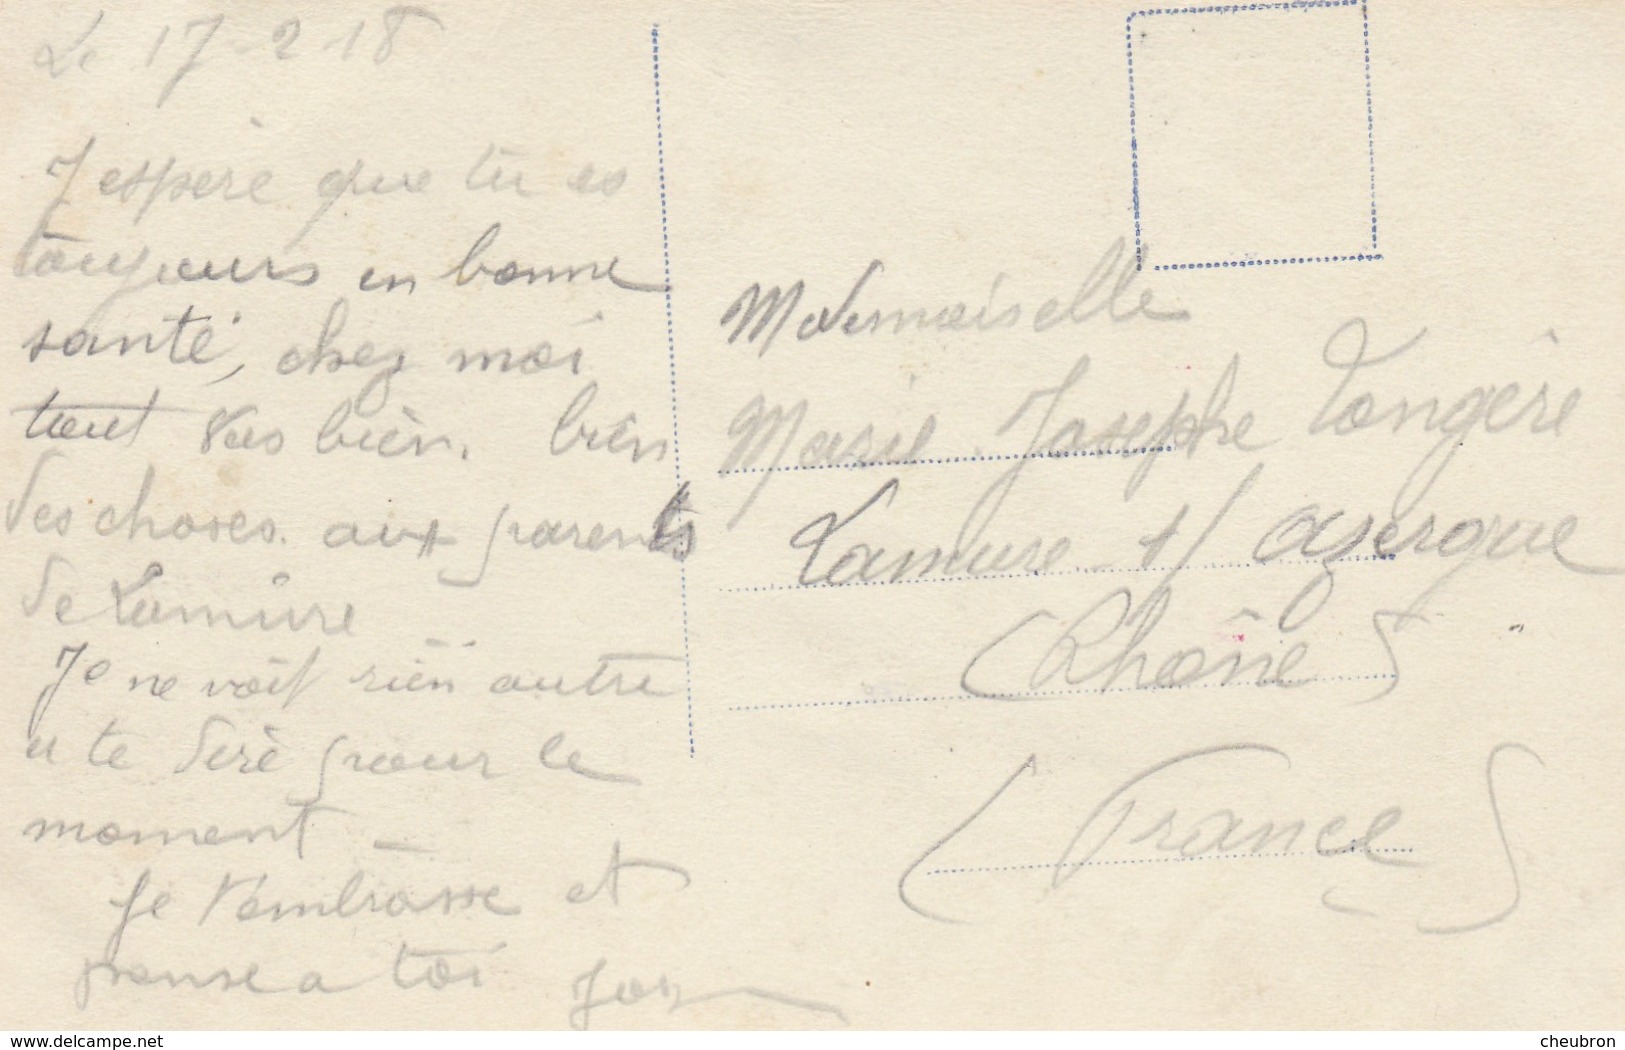 Le 17-2-18
J espère que tu es
toujours en bonne
santé, chez moi
tout vas bien. bien
des choses. aux parents
de Lamure
Je ne voit rien autre
a te diré pour le
moment -
Je t'embrasse et
pense a toi
Mademoiselle
Marie Josephe Longère
Lamure s/ azergue
(Rhône)
(France)
www.delcampe.net
cheubron